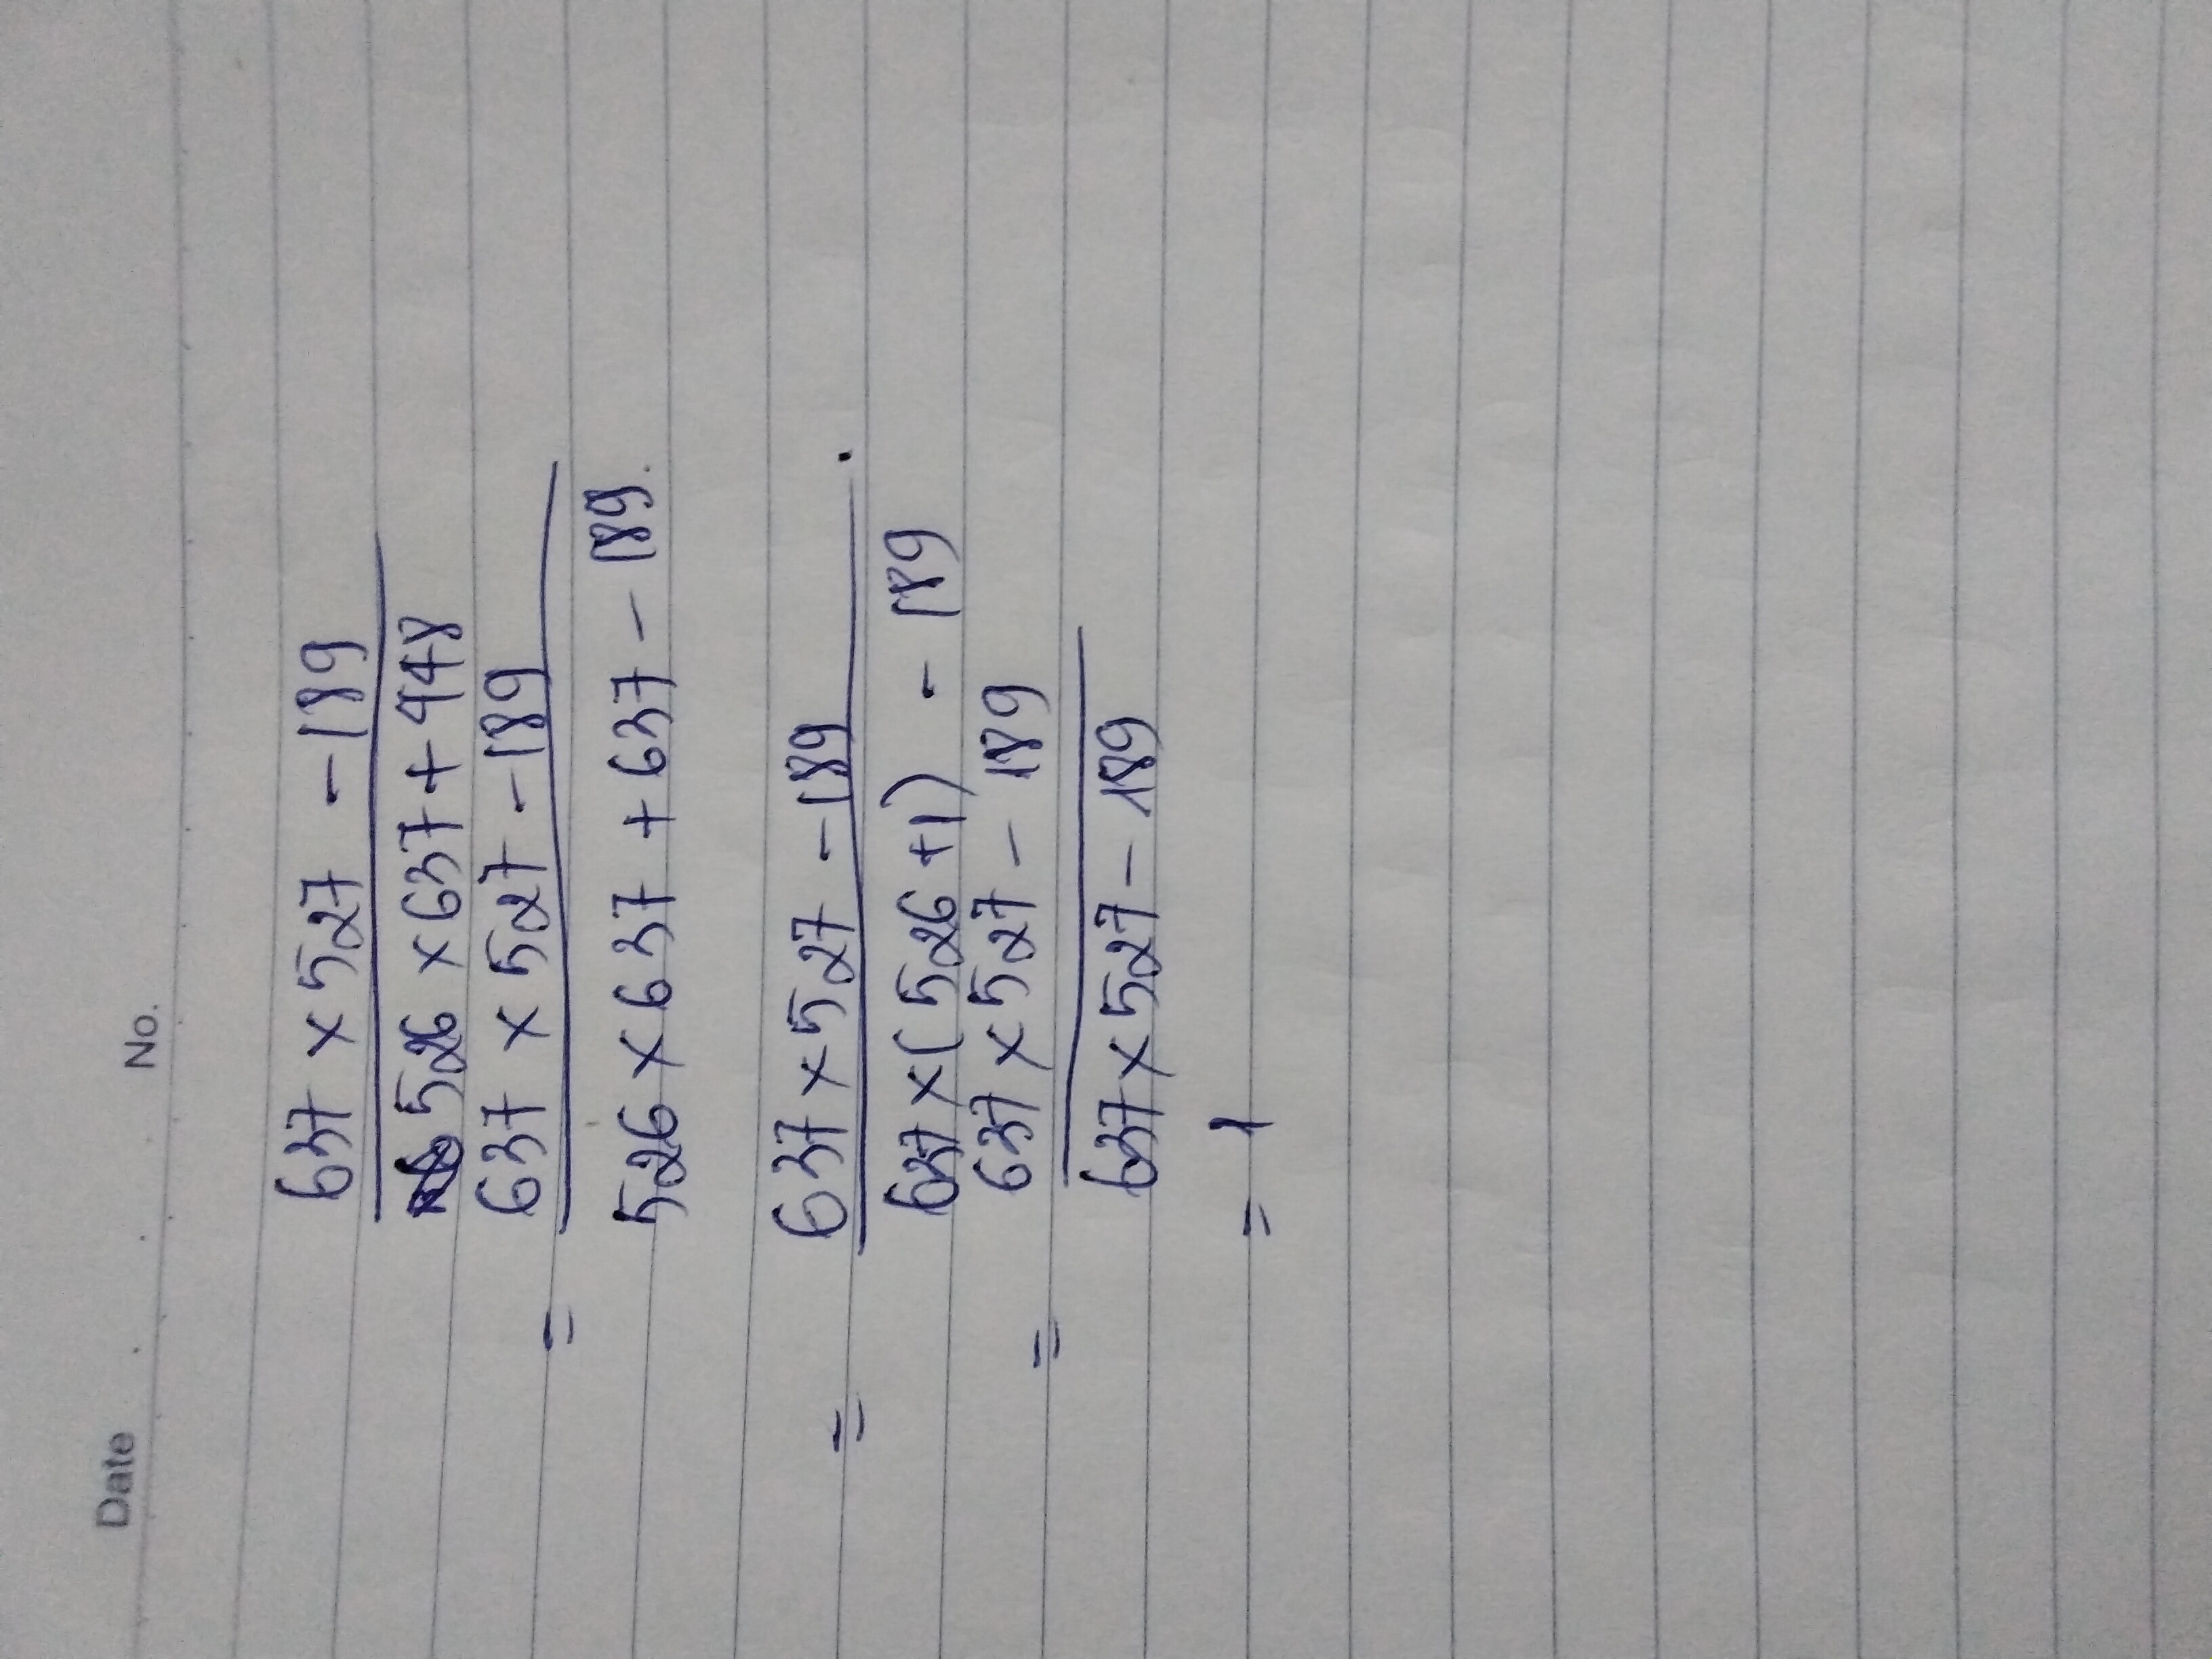 Date No.
637 × 527 - 189
526 × 637 + 448
= 637 × 527 - 189
526 × 637 + 637 - 189.
= 637 × 527 - 189 .
637 × (526 + 1) - 189
= 637 × 527 - 189
637 × 527 - 189
= 1